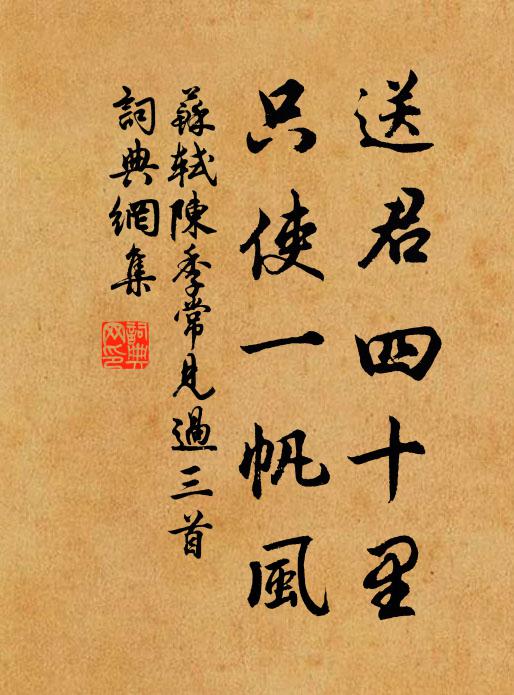 送君四十里
只使一帆風
蘇軾陳季常見過三首
詞典網集
詞典网印